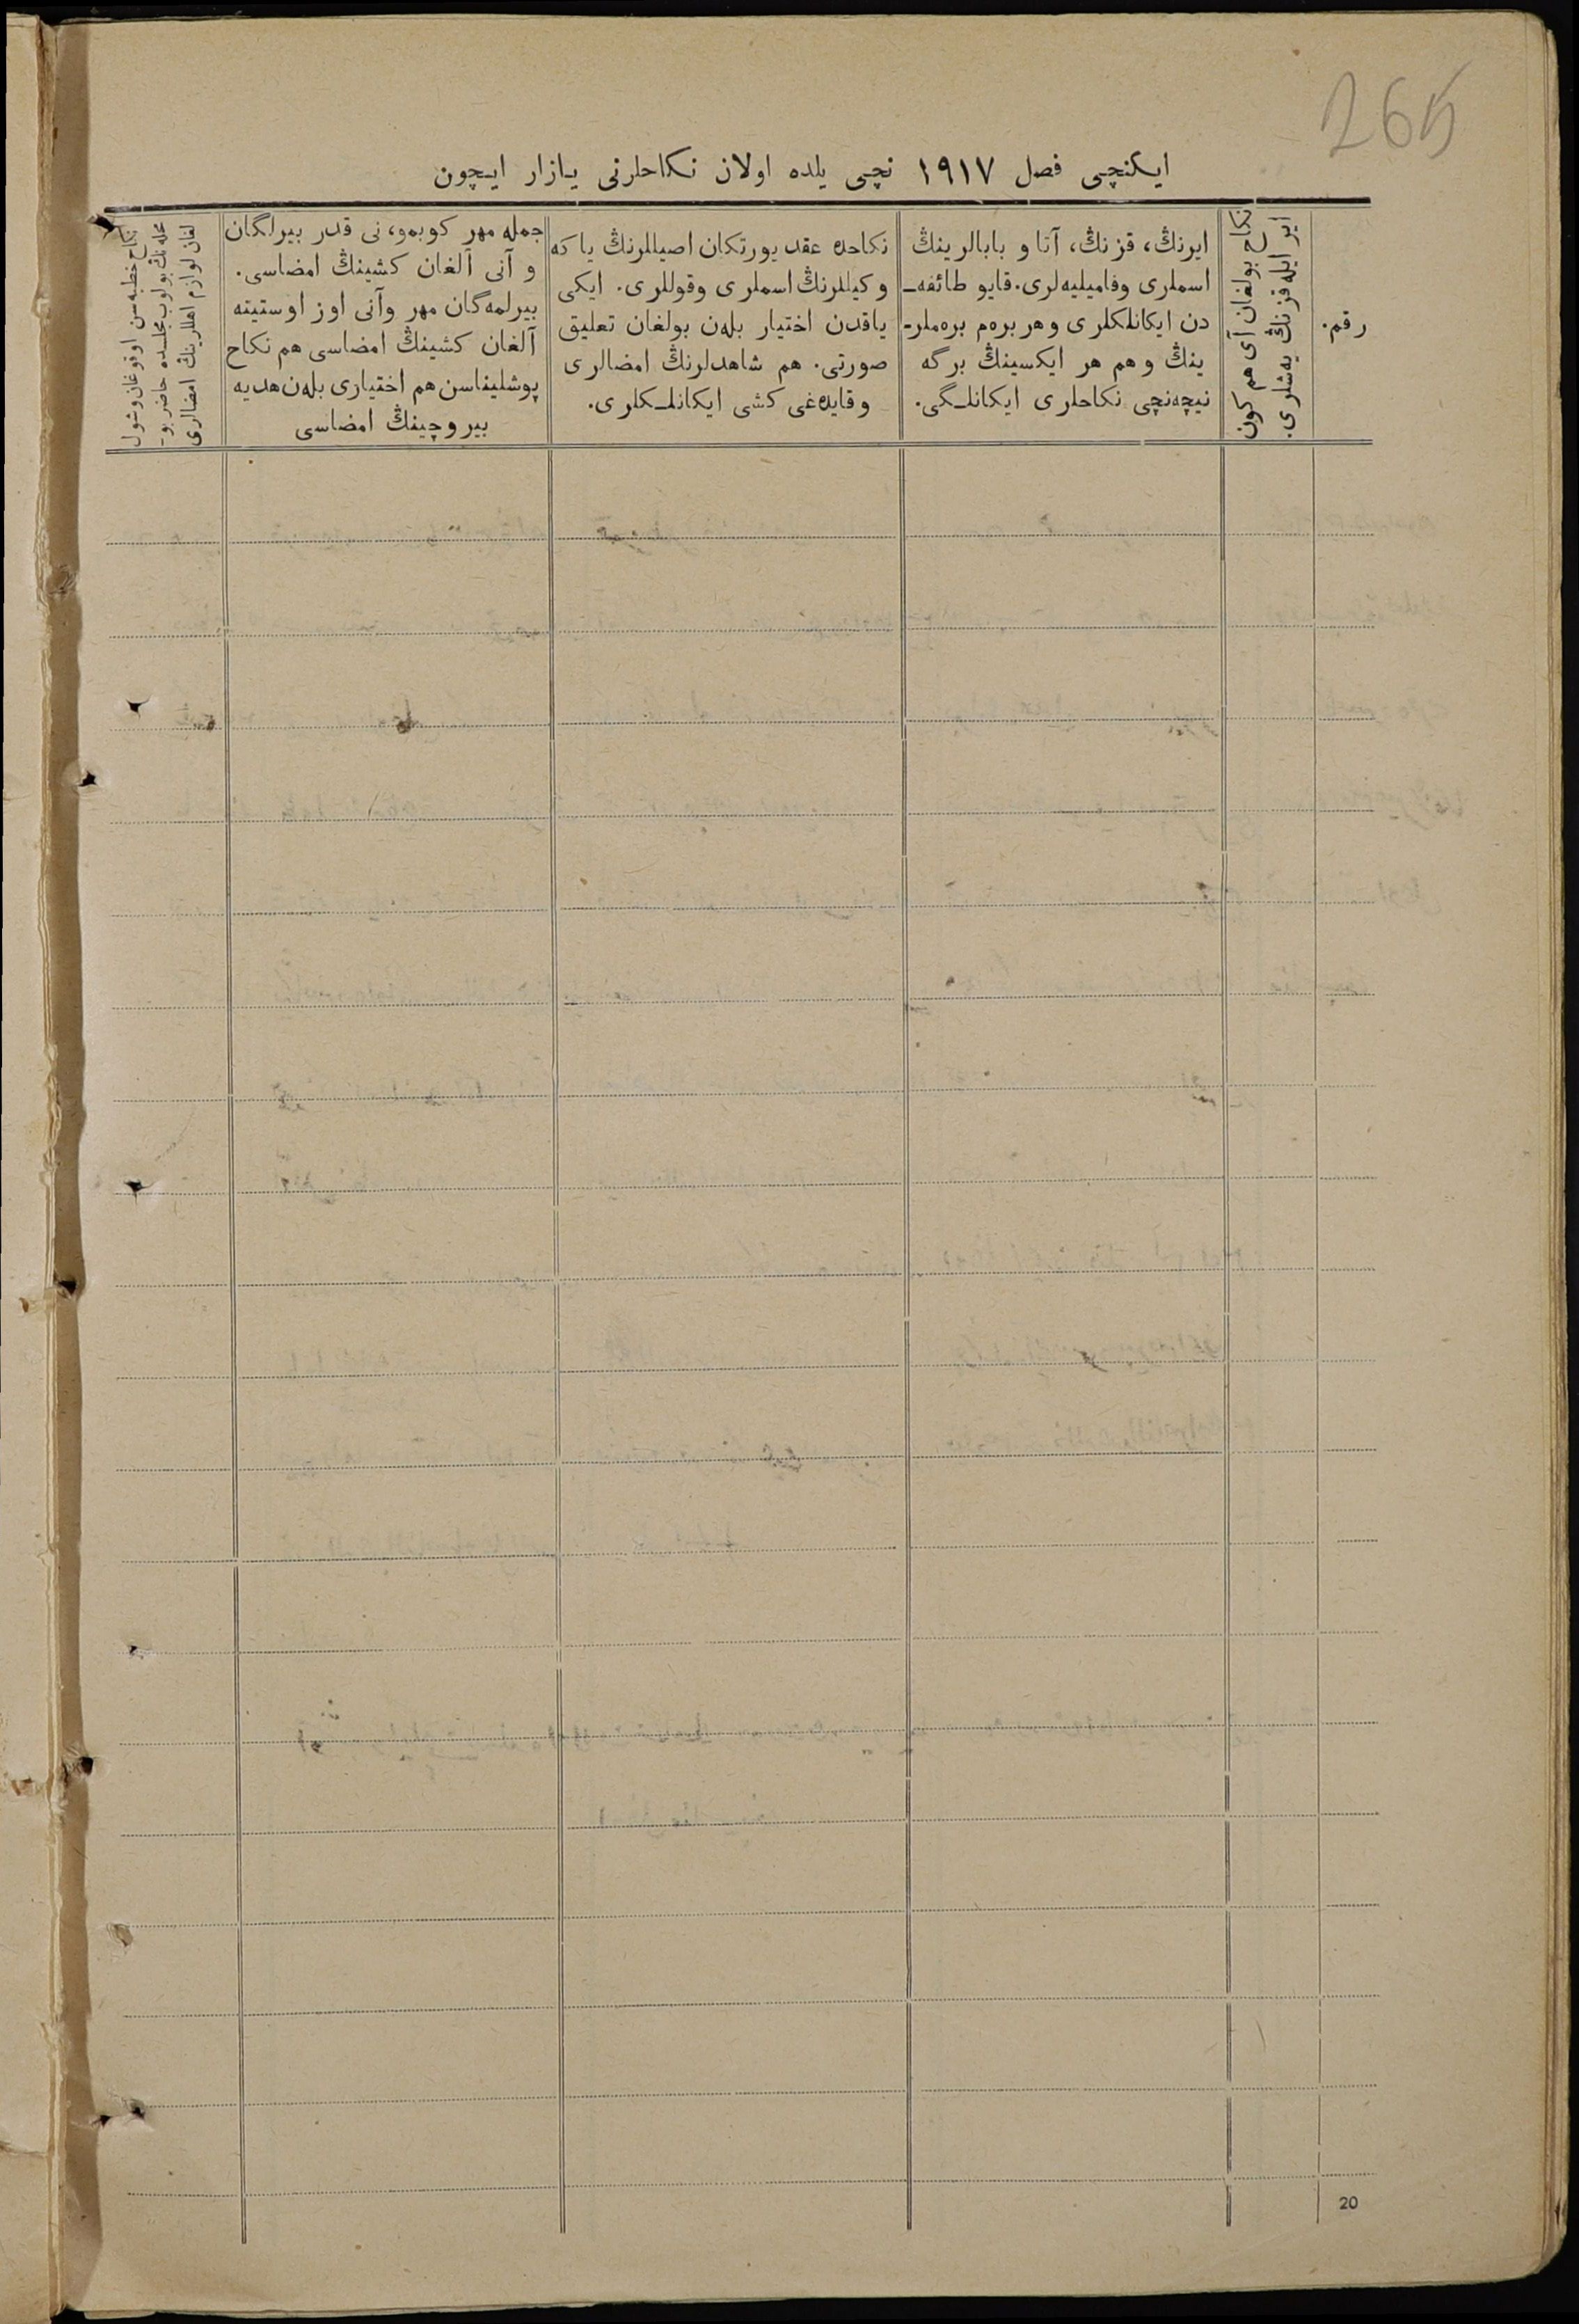 265
ایکنچی فصل ١٩١٧ نچی یلده اولان نکاحلرنی یازار ایچون
رقم.
ایر ایله قزنڭ یه‌شلری.
نکاح بولغان آی هم کون
ایرنڭ، قزنڭ، آتا و بابالرینڭ
اسملری وفامیلیه‌لری. قایو طائفه‌ـ
دن ایکانلکلری و هر بره‌م بره‌ملرـ
ینڭ و هم هر ایکسینڭ برگه
نیچه‌نچی نکاحلری ایکانلـگی.
نکاحده عقد یورتکان اصیللرنڭ یا که
وکیللرنڭ اسملری وقوللری. ایکی
یاقدن اختیار بله‌ن بولغان تعلیق
صورتی. هم شاهدلرنڭ امضالری
وقایده‌غی کشی ایکانلـکلری.
جمله مهر کوبمو، نی قدر بیرلگان
و آنی آلغان کشینڭ امضاسی.
بیرلمه‌گان مهر وآنی اوز اوستینه
آلغان کشینڭ امضاسی هم نکاح
پوشلیناسن هم اختیاری بله‌ن هدیه
بیروچینڭ امضاسی
نکاح خطبه‌سن اوقوغان وشول
محله‌نڭ بولوب مجلسده حاضر بوـ
لغان لوازم اهللرینڭ امضالری
20